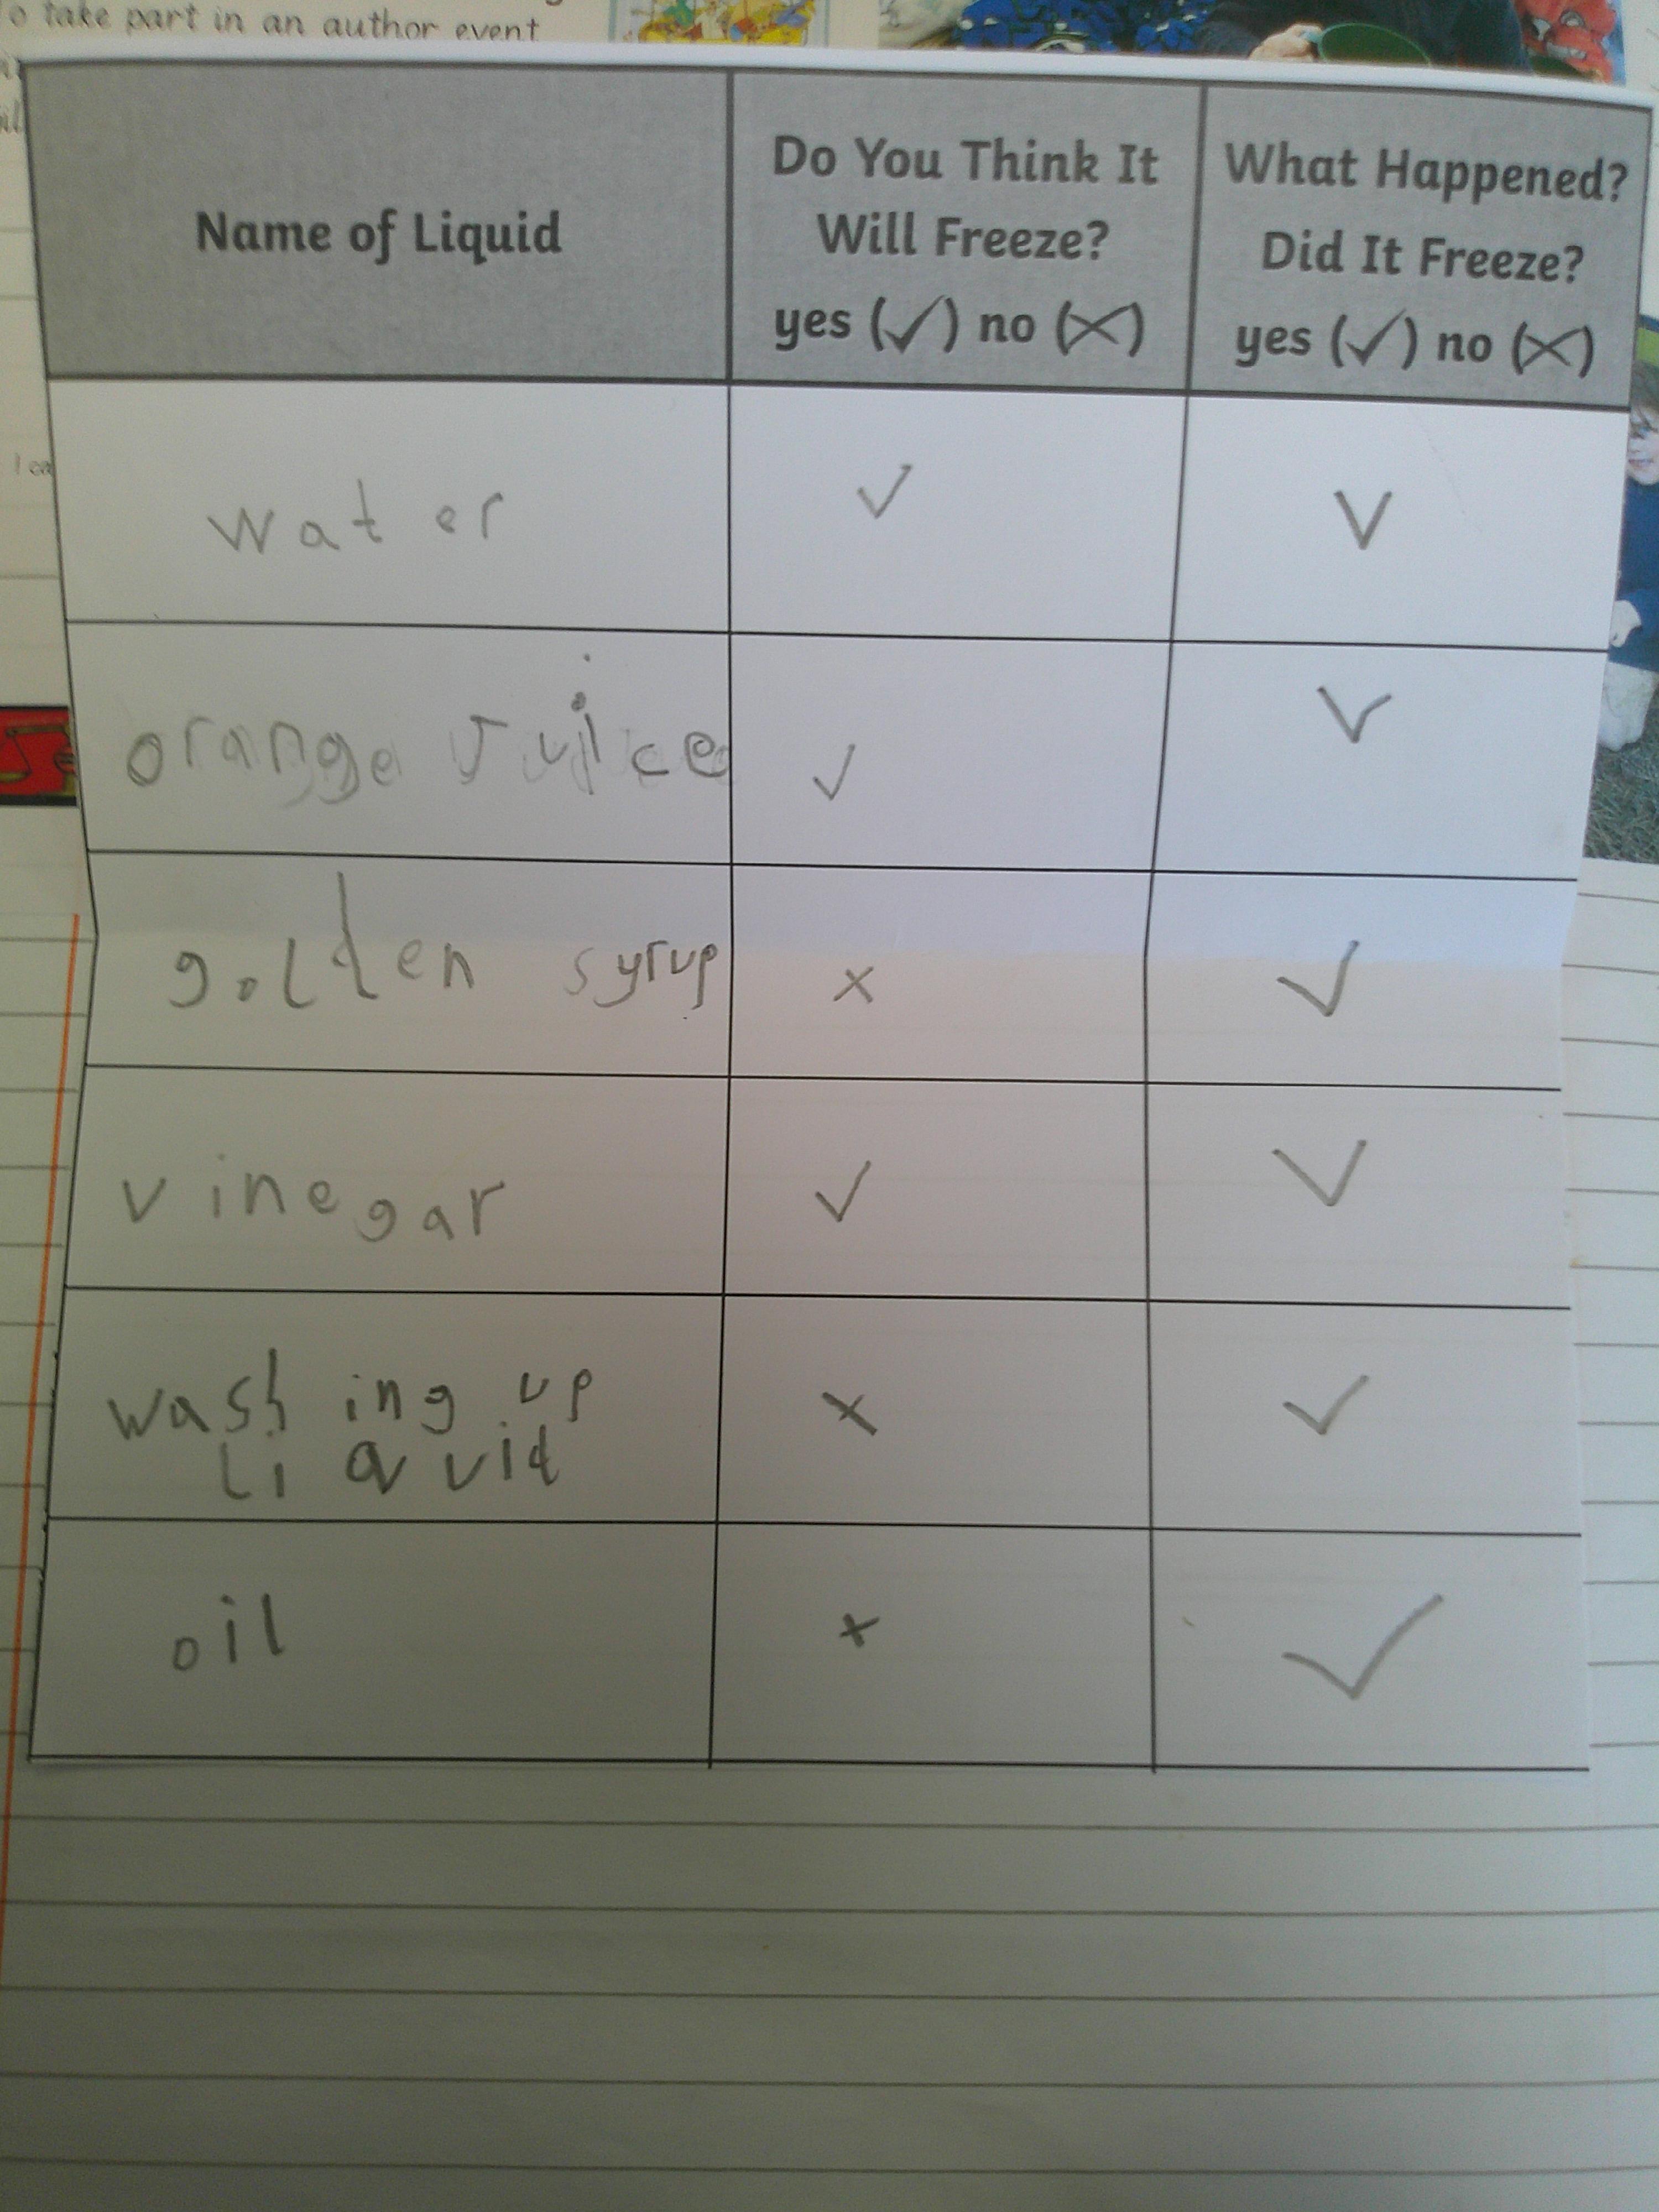 o take part in an author event
Name of Liquid
Do You Think It
Will Freeze?
yes (✓) no (✗)
What Happened?
Did It Freeze?
yes (✓) no (✗)
water ✓ ✓
orange Juice ✓ ✓
golden syrup ✗ ✓
vinegar ✓ ✓
wash ing up
liquid ✗ ✓
oil ✗ ✓